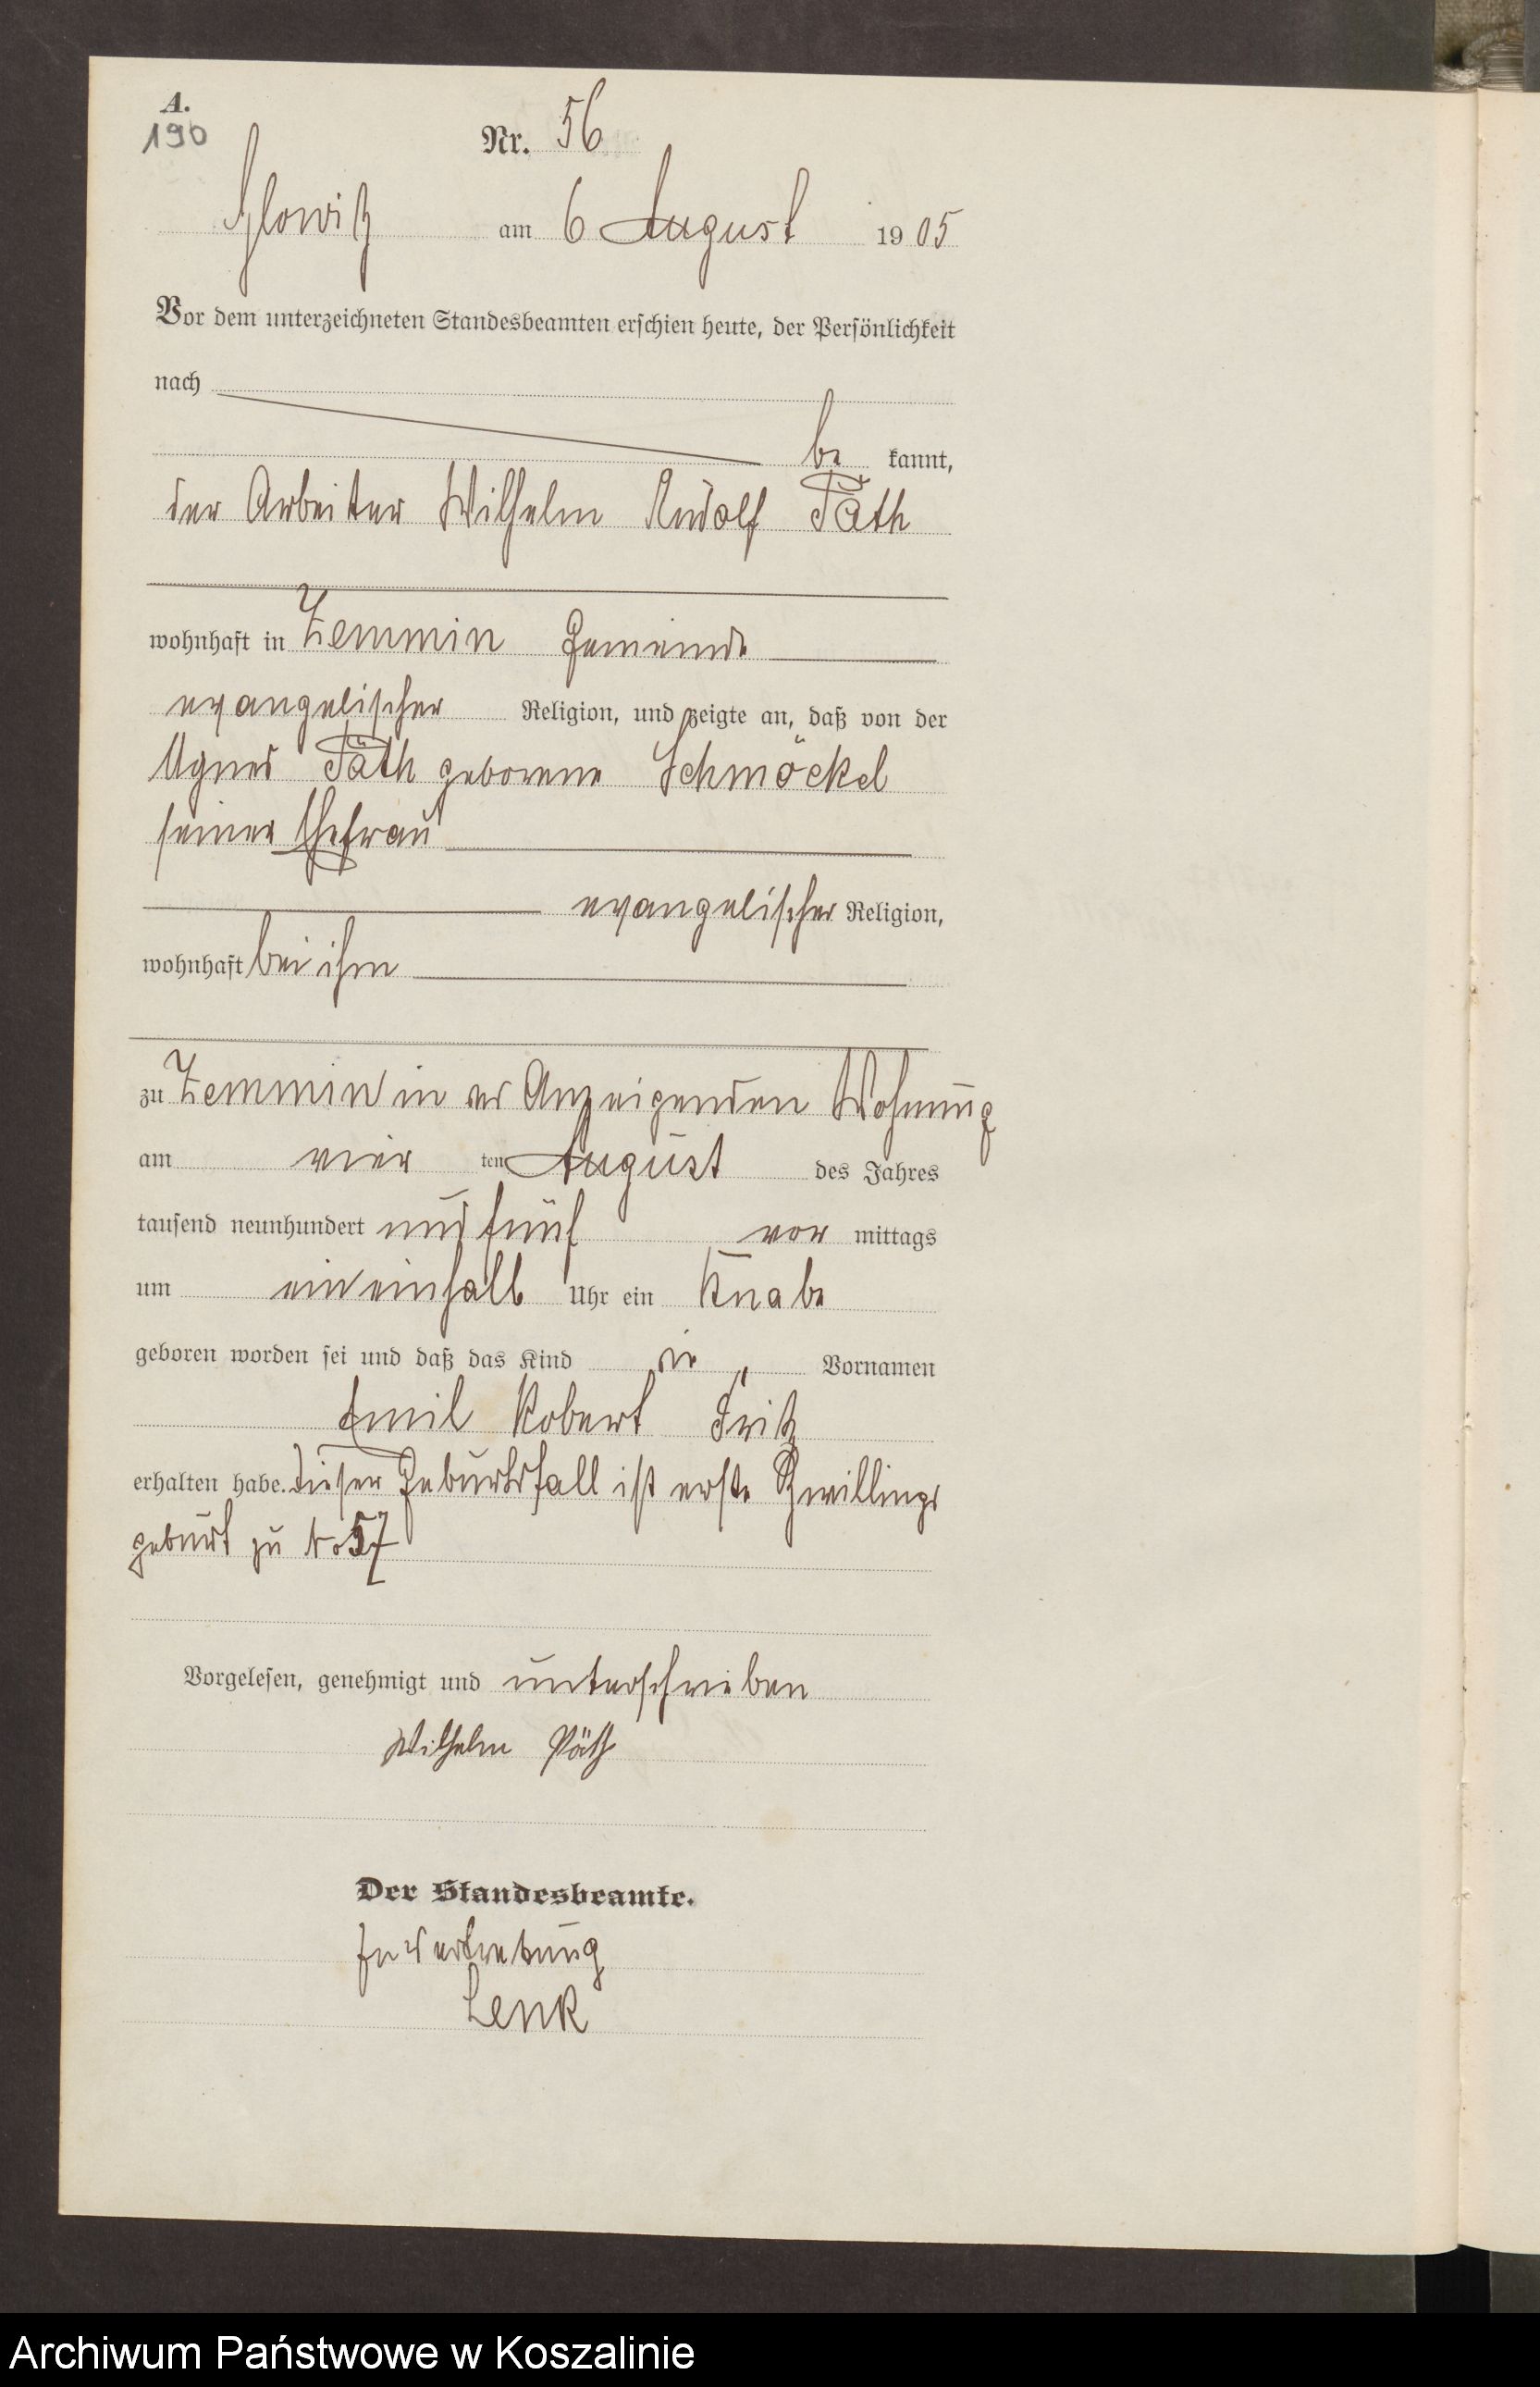 A.
190
Nr. 56
Glowitz am 6 August 1905
Vor dem unterzeichneten Standesbeamten erschien heute, der Persönlichkeit
nach
be kannt,
der Arbeiter Wilhelm Rudolf Päth
wohnhaft in Zemmin Gemeinde
evangelischer Religion, und zeigte an, daß von der
Agnes Päth geborene Schmöckel
seiner Ehefrau
evangelischer Religion,
wohnhaft bei ihm
zu Zemmin in des Anzeigenden Wohnung
am vier ten August des Jahres
tausend neunhundert und fünf vor mittags
um ein einhalb Uhr ein Knabe
geboren worden sei und daß das Kind die Vornamen
Emil Robert Fritz
erhalten habe. Dieser Geburtsfall ist erste Zwillings
geburt zu No 57
Vorgelesen, genehmigt und unterschrieben
Wilhelm Päth
Der Standesbeamte.
In Vertretung
Lenk
Archiwum Państwowe w Koszalinie